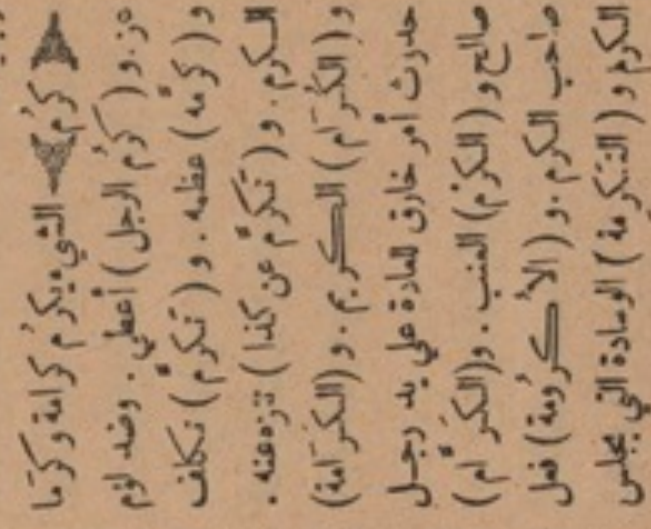 ﴿ كَرُمَ ﴾ الشيء يكرُم كرامة وكرَمًا
عز . و ( كَرُم الرجل ) أعطى . وضد لؤم
و ( كرَّمه ) عظمه . و ( تكرَّم ) تكلف
الكرم . و ( تكرَّم عن كذا ) تنزه عنه .
و ( الكُرَام ) الكريم . و ( الكرَامة )
حدوث أمر خارق للعادة على يد رجل
صالح و ( الكرْم ) العنب . و ( الكرَّام )
صاحب الكرم . و ( الأُكرُومة ) فعل
الكرم و ( التكرمة ) الوسادة التي يجلس